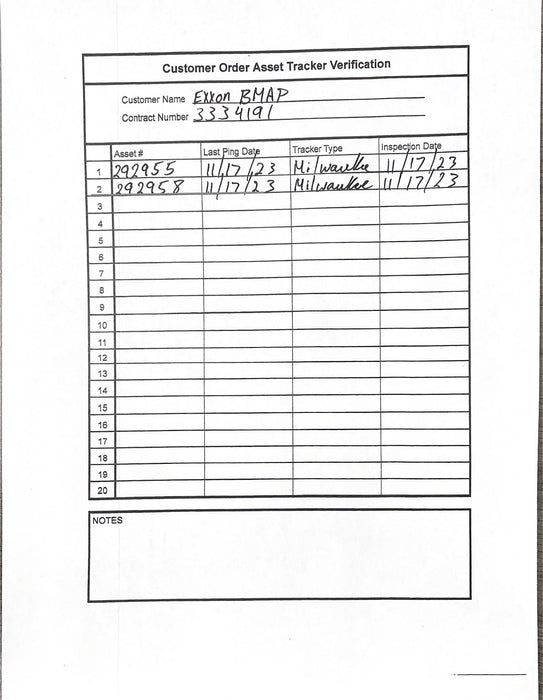 Customer Order Asset Tracker Verification
Customer Name Exxon BMAP
Contract Number 3334191
Asset # Last Ping Date Tracker Type Inspection Date
1 292955 11/17/23 Milwaukee 11/17/23
2 292958 11/17/23 Milwaukee 11/17/23
3
4
5
6
7
8
9
10
11
12
13
14
15
16
17
18
19
20
NOTES